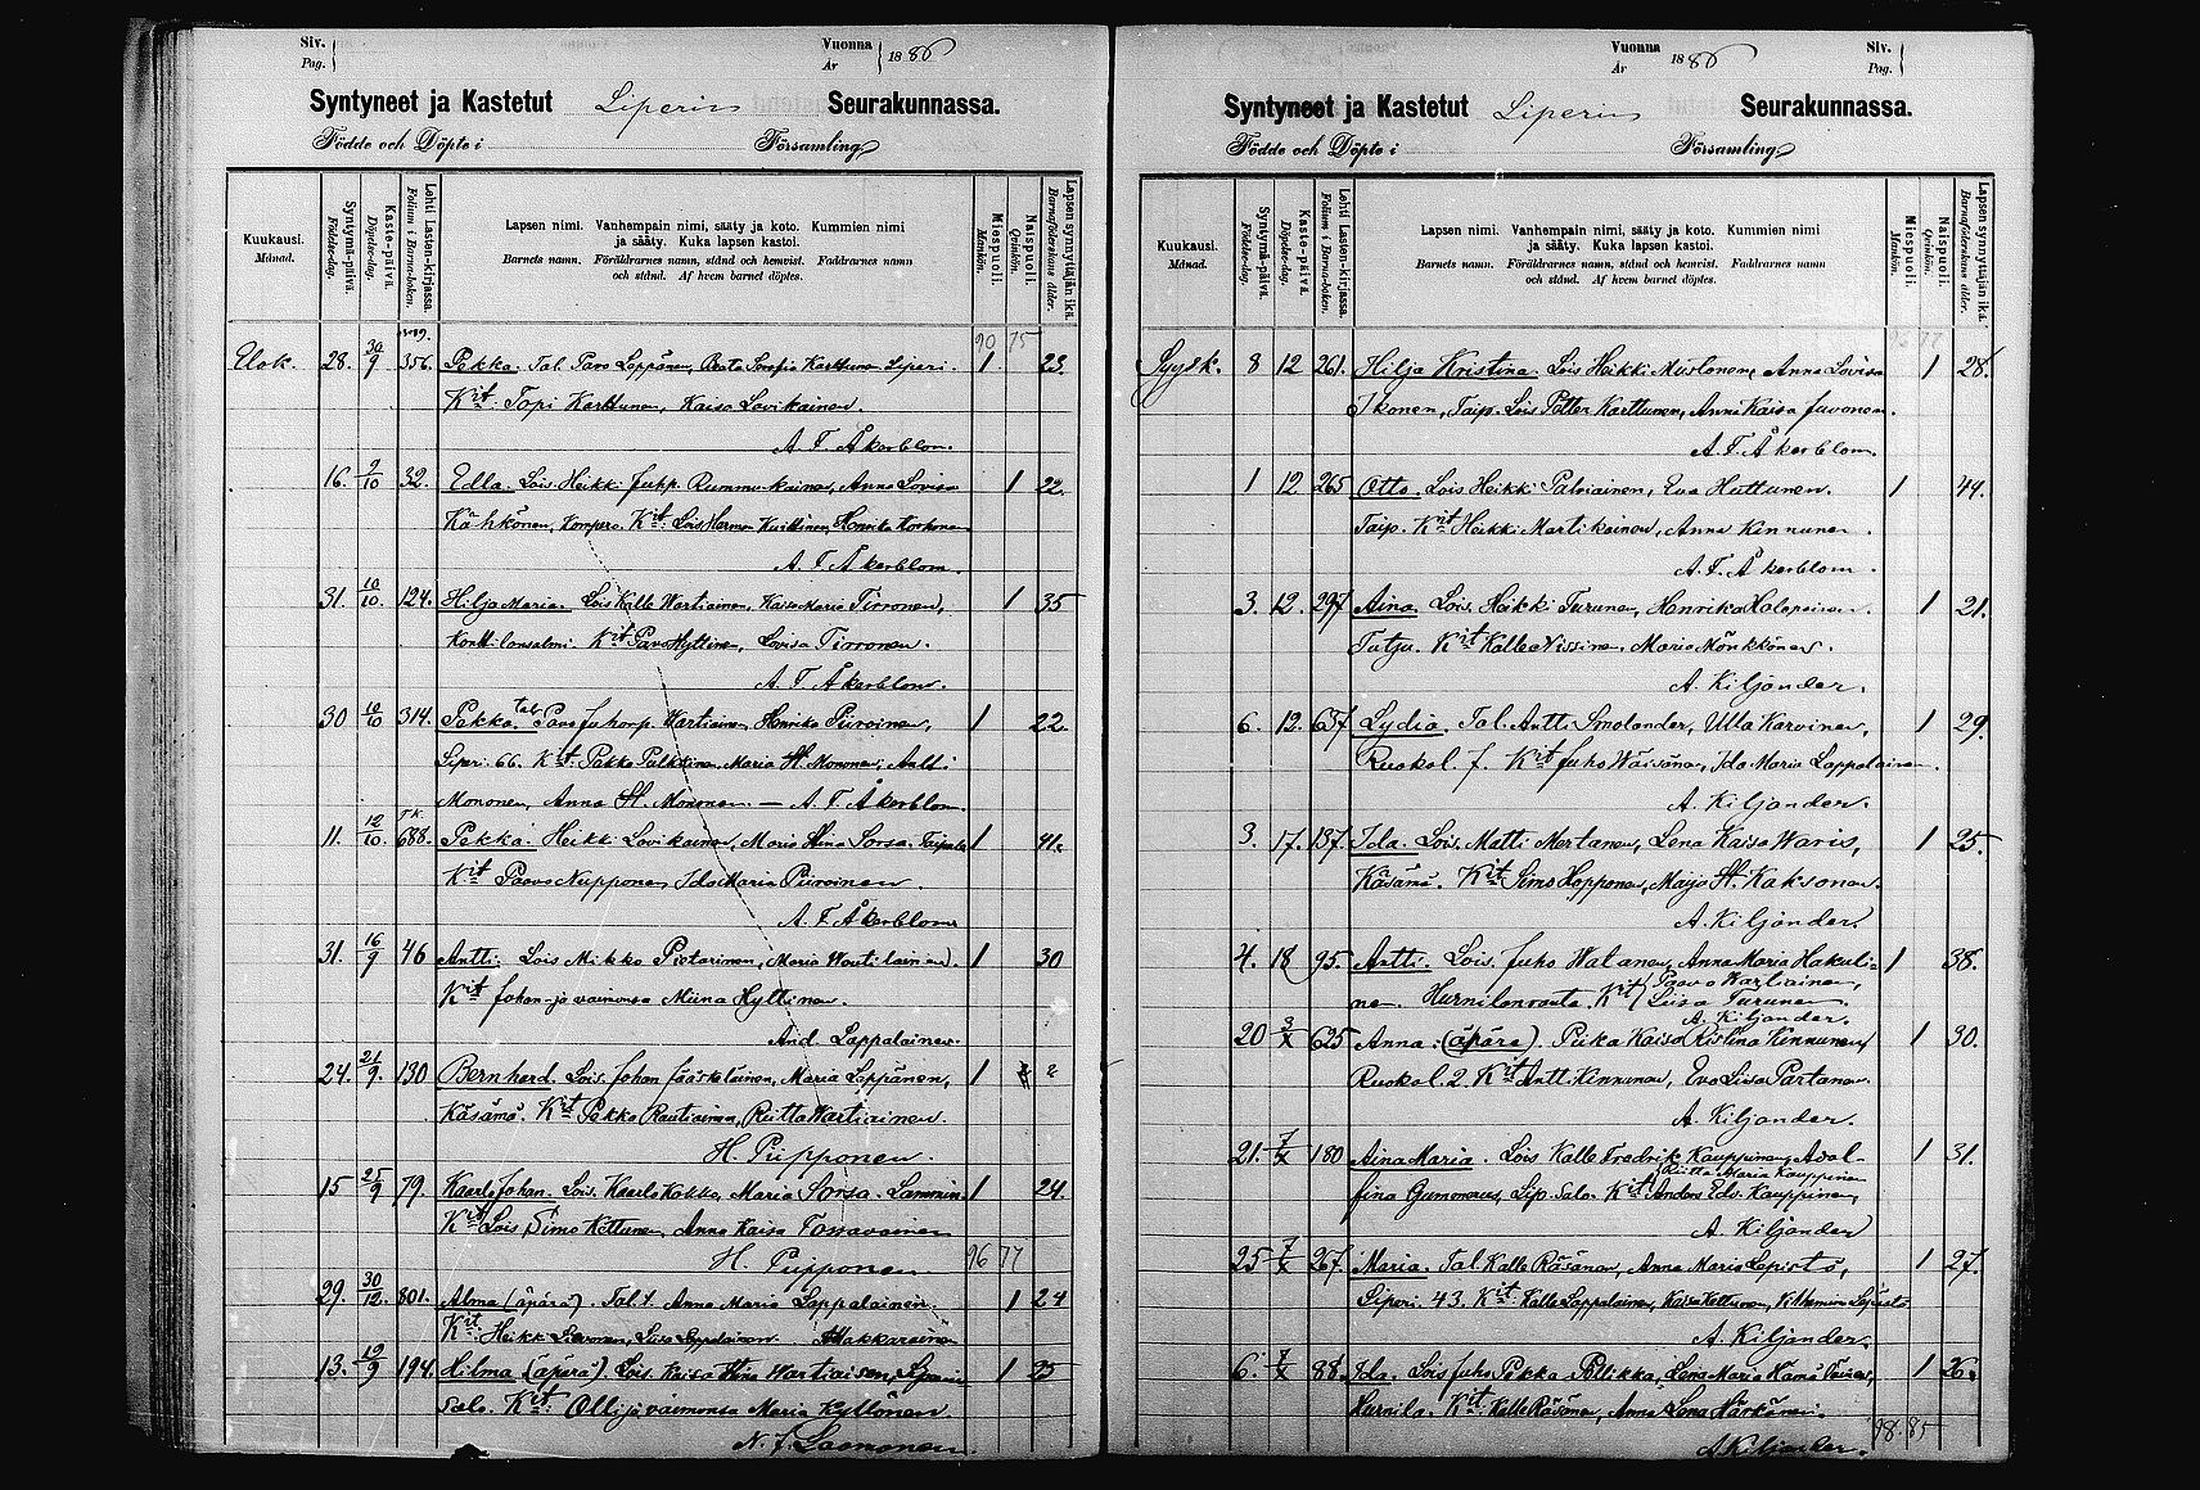 Siv.
Pag.
Vuonna
År
1886
Syntyneet ja Kastetut Liperin Seurakunnassa.
Födde och Döpte i Församling
Kuukausi.
Månad.
Syntymä-päivä.
Födelse-dag.
Kaste-päivä.
Döpelse-dag.
Lehti Lasten-kirjassa.
Folium i Barna-boken.
Lapsen nimi. Vanhempain nimi, sääty ja koto. Kummien nimi
ja sääty. Kuka lapsen kastoi.
Barnets namn. Föräldrarnes namn, stånd och hemvist. Faddrarnes namn
och stånd. Af hvem barnet döptes.
Miespuoli.
Mankön.
Naispuoli.
Qvinkön.
Lapsen synnyttäjän ikä.
Barnaföderskans ålder.
90 75
Elok. 28. 30/9 356. Pekka. Tal. Pavo Leppänen, Beata Serafia Karttunen Liperi. 1 23.
Kit: Topi Karttunen, Kaisa Lovikainen.
A. F. Åkerblom.
16. 2/10 32. Edla. Lois. Heikki Juhp. Rummukainen, Anna Lovisa 1 22.
Kähkönen, Kompero. Kit: Lois Herman Kuittinen, Henrika Korhonen
A. F. Åkerblom.
31. 10/10. 124. Hilja Maria. Lois Kalle Wartiainen, Kaisa Maria Tirronen, 1 35
Konttilansalmi. Kit Pavo Hyttinen, Lovisa Tirronen.
A. F. Åkerblom.
30 10/10 314. Pekka. tal. Pavo Juhonp. Wartiainen, Henrika Piiroinen, 1 22.
Liperi 66. Kit: Pekka Pulkkinen, Maria St. Mononen, Antti
Mononen, Anna St. Mononen. — A. F. Åkerblom.
11. 12/10. TK. 688. Pekka. Heikki Lovikainen, Maria Stina Sorsa. Taipale 1 41.
Kit Paavo Nupponen, Ida Maria Piiroinen.
A. F. Åkerblom
31. 16/9 46 Antti. Lois Mikko Pietarinen, Maria Woutilainen. 1 30
Kit Johan ja vaimonsa Miina Hyttinen.
And. Lappalainen.
24. 21/9. 130 Bernhard. Lois. Johan Jääskeläinen, Maria Leppänen, 1 ?
Käsämä. Kit Pekka Rautiainen, Riitta Wartiainen.
H. Piipponen.
15 25/9 79. Kaarlo Johan. Lois. Kaarlo Kokko, Maria Sorsa. Lammin. 1 24.
Kit Lois Simo Kettunen, Anna Kaisa Tossavainen
H. Piipponen. 96 77
29. 30/12. 801. Alma (äpärä). Tal. t. Anna Maria Lappalainen. 1 24
Kit: Heikki Lappalainen Makkarainen
13. 19/9 194. Hilma (äpärä). Lois. Kaisa Stina Wartiaisen, 1 25
Salo. Kit: Olli ja vaimonsa Maria Kyllönen.
N. J. Laamanen.
Vuonna
År
1886
Siv.
Pag.
Syntyneet ja Kastetut Liperin Seurakunnassa.
Födde och Döpte i Församling
Kuukausi.
Månad.
Syntymä-päivä.
Födelse-dag.
Kaste-päivä.
Döpelse-dag.
Lehti Lasten-kirjassa.
Folium i Barna-boken.
Lapsen nimi. Vanhempain nimi, sääty ja koto. Kummien nimi
ja sääty. Kuka lapsen kastoi.
Barnets namn. Föräldrarnes namn, stånd och hemvist. Faddrarnes namn
och stånd. Af hvem barnet döptes.
Miespuoli.
Mankön.
Naispuoli.
Qvinkön.
Lapsen synnyttäjän ikä.
Barnaföderskans ålder.
96 77
Syysk. 8 12 261. Hilja Kristina. Lois Heikki Mustonen, Anna Lovisa 1 28.
Ikonen, Taip. Lois Petter Karttunen, Anna Kaisa Juvonen.
A. F. Åkerblom.
1 12 265 Otto. Lois Heikki Palviainen, Eva Huttunen. 1 44.
Taip. Kit Heikki Martikainen, Anna Kinnunen.
A. F. Åkerblom.
3. 12. 297 Aina. Lois. Heikki Turunen, Henrika Holopainen. 1 21.
Tutju. Kit Kalle Nissinen, Maria Mönkkönen.
A. Kiljander.
6. 12. 637 Lydia. Tal. Antti Smolander, Ulla Karvinen, 1 29.
Ruokol. 7. Kit Juho Wäisänen, Ida Maria Lappalainen.
A. Kiljander.
3. 17. 137. Ida. Lois. Matti Mertanen, Lena Kaisa Waris, 1 25.
Käsämä. Kit Simo Hopponen, Maija St. Kaksonen.
A. Kiljander.
4. 18 95. Antti. Lois. Juho Watanen, Anna Maria Hakuli= 1 38.
nen. Hurnilanrauta. Kit Paavo Kartiainen,
Liisa Turunen.
A. Kiljander.
20 3/X 625 Anna: (äpärä). Piika Kaisa Ristina Kinnunen, 1 30.
Ruokol. 2. Kit Antti Kinnunen, Eva Liisa Partanen.
A. Kiljander.
21. 7/X 180 Aina Maria. Lois Kalle Fredrik Kauppinen, Adol- 1 31.
Riitta Maria Kauppinen
fina Gummerus, Lip. Salo. Kit Anders Edv. Kauppinen,
A. Kiljander
25 7/X 267. Maria. Tal. Kalle Räsänen, Anna Maria Lepistö, 1 27.
Liperi. 43. Kit: Kalle Lappalainen, Kaisa Kettunen, Lepistö
A. Kiljander.
6. 7/X 88. Ida. Lois Juho Pekka Pöllikkä, Lena Maria Hämäläinen, 1 26.
Hurnila. Kit: Kalle Räsänen, Anna Lena Härkänen.
98. 85
A. Kiljander.